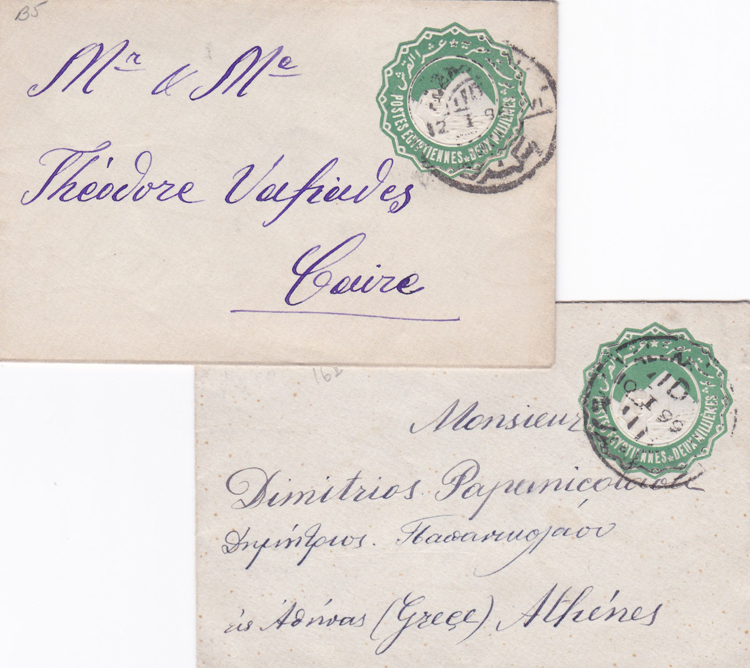 B5
Mr & Me
Théodore Vafiades
Caire
POSTES EGYPTIENNES DEUX MILLIÈMES
12 I 9
162
Monsieur
Dimitrios Papanicolaou
Δημήτριος. Παπανικολάου
εἰς Ἀθήνας (Grèce) Athénes
POSTES EGYPTIENNES DEUX MILLIÈMES
ALEXAN
10 I 95